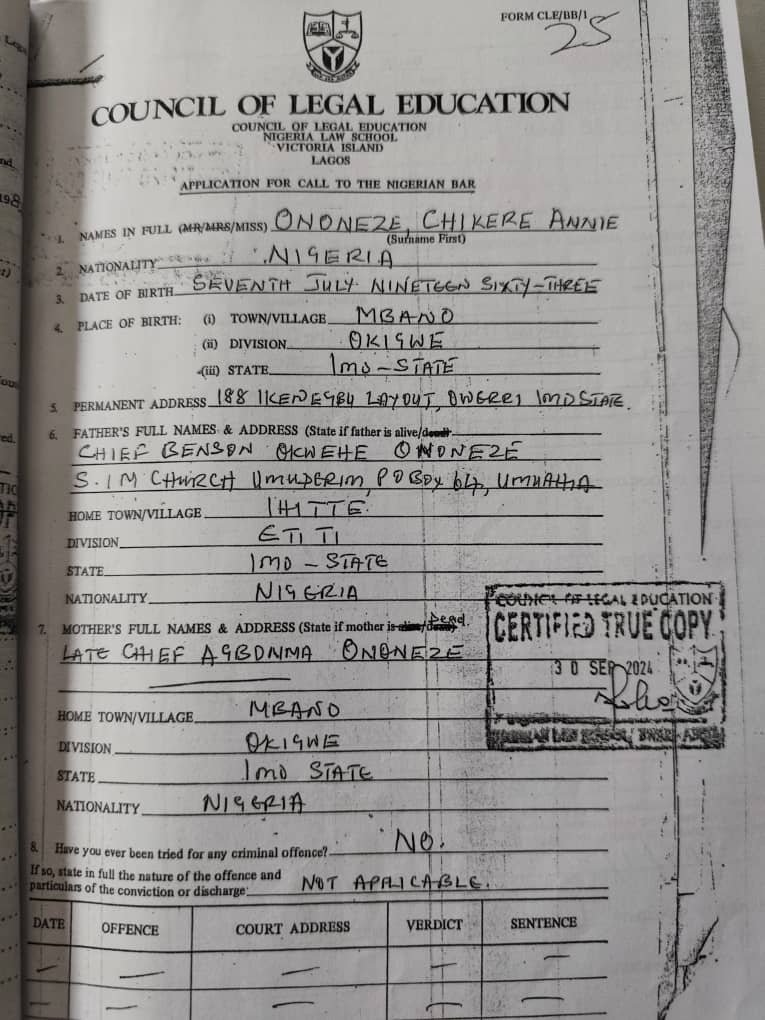 FORM CLE/BB/1
25
COUNCIL OF LEGAL EDUCATION
COUNCIL OF LEGAL EDUCATION
NIGERIA LAW SCHOOL
VICTORIA ISLAND
LAGOS
APPLICATION FOR CALL TO THE NIGERIAN BAR
1. NAMES IN FULL (MR/MRS/MISS) ONONEZE, CHIKERE ANNIE
(Surname First)
2. NATIONALITY NIGERIA
3. DATE OF BIRTH SEVENTH JULY NINETEEN SIXTY-THREE
4. PLACE OF BIRTH: (i) TOWN/VILLAGE MBANO
(ii) DIVISION OKIGWE
(iii) STATE IMO-STATE
5. PERMANENT ADDRESS 188 IKENEGBU LAYOUT, OWERRI IMO STATE.
6. FATHER'S FULL NAMES & ADDRESS (State if father is alive/dead)
CHIEF BENSON OKWEHE ONONEZE
S.I M CHURCH UMUDERIM, P O BOX 64, UMUAHIA
HOME TOWN/VILLAGE IHITTE
DIVISION ETITI
STATE IMO-STATE
NATIONALITY NIGERIA
7. MOTHER'S FULL NAMES & ADDRESS (State if mother is alive/dead) Dead.
LATE CHIEF AGBONMA ONONEZE
HOME TOWN/VILLAGE MBANO
DIVISION OKIGWE
STATE IMO STATE
NATIONALITY NIGERIA
COUNCIL OF LEGAL EDUCATION
CERTIFIED TRUE COPY
30 SEP 2024
8. Have you ever been tried for any criminal offence? NO.
If so, state in full the nature of the offence and
particulars of the conviction or discharge: NOT APPLICABLE.
DATE OFFENCE COURT ADDRESS VERDICT SENTENCE
— — — — —
— — — — —